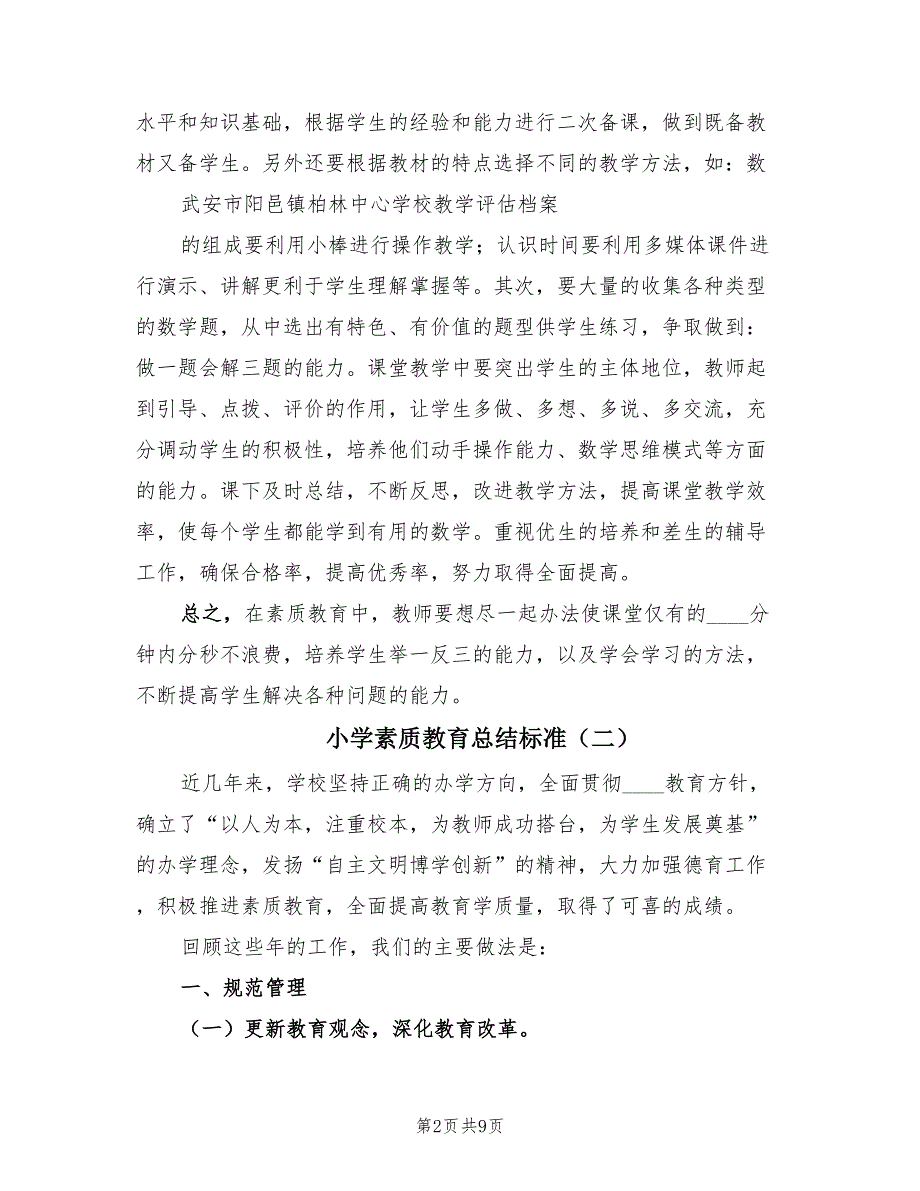 水平和知识基础，根据学生的经验和能力进行二次备课，做到既备教
材又备学生。另外还要根据教材的特点选择不同的教学方法，如：数
武安市阳邑镇柏林中心学校教学评估档案
的组成要利用小棒进行操作教学；认识时间要利用多媒体课件进
行演示、讲解更利于学生理解掌握等。其次，要大量的收集各种类型
的数学题，从中选出有特色、有价值的题型供学生练习，争取做到：
做一题会解三题的能力。课堂教学中要突出学生的主体地位，教师起
到引导、点拨、评价的作用，让学生多做、多想、多说、多交流，充
分调动学生的积极性，培养他们动手操作能力、数学思维模式等方面
的能力。课下及时总结，不断反思，改进教学方法，提高课堂教学效
率，使每个学生都能学到有用的数学。重视优生的培养和差生的辅导
工作，确保合格率，提高优秀率，努力取得全面提高。
总之，在素质教育中，教师要想尽一起办法使课堂仅有的____分
钟内分秒不浪费，培养学生举一反三的能力，以及学会学习的方法，
不断提高学生解决各种问题的能力。
小学素质教育总结标准（二）
近几年来，学校坚持正确的办学方向，全面贯彻____教育方针，
确立了“以人为本，注重校本，为教师成功搭台，为学生发展奠基”
的办学理念，发扬“自主文明博学创新”的精神，大力加强德育工作
，积极推进素质教育，全面提高教育学质量，取得了可喜的成绩。
回顾这些年的工作，我们的主要做法是：
一、规范管理
（一）更新教育观念，深化教育改革。
第2页共9页